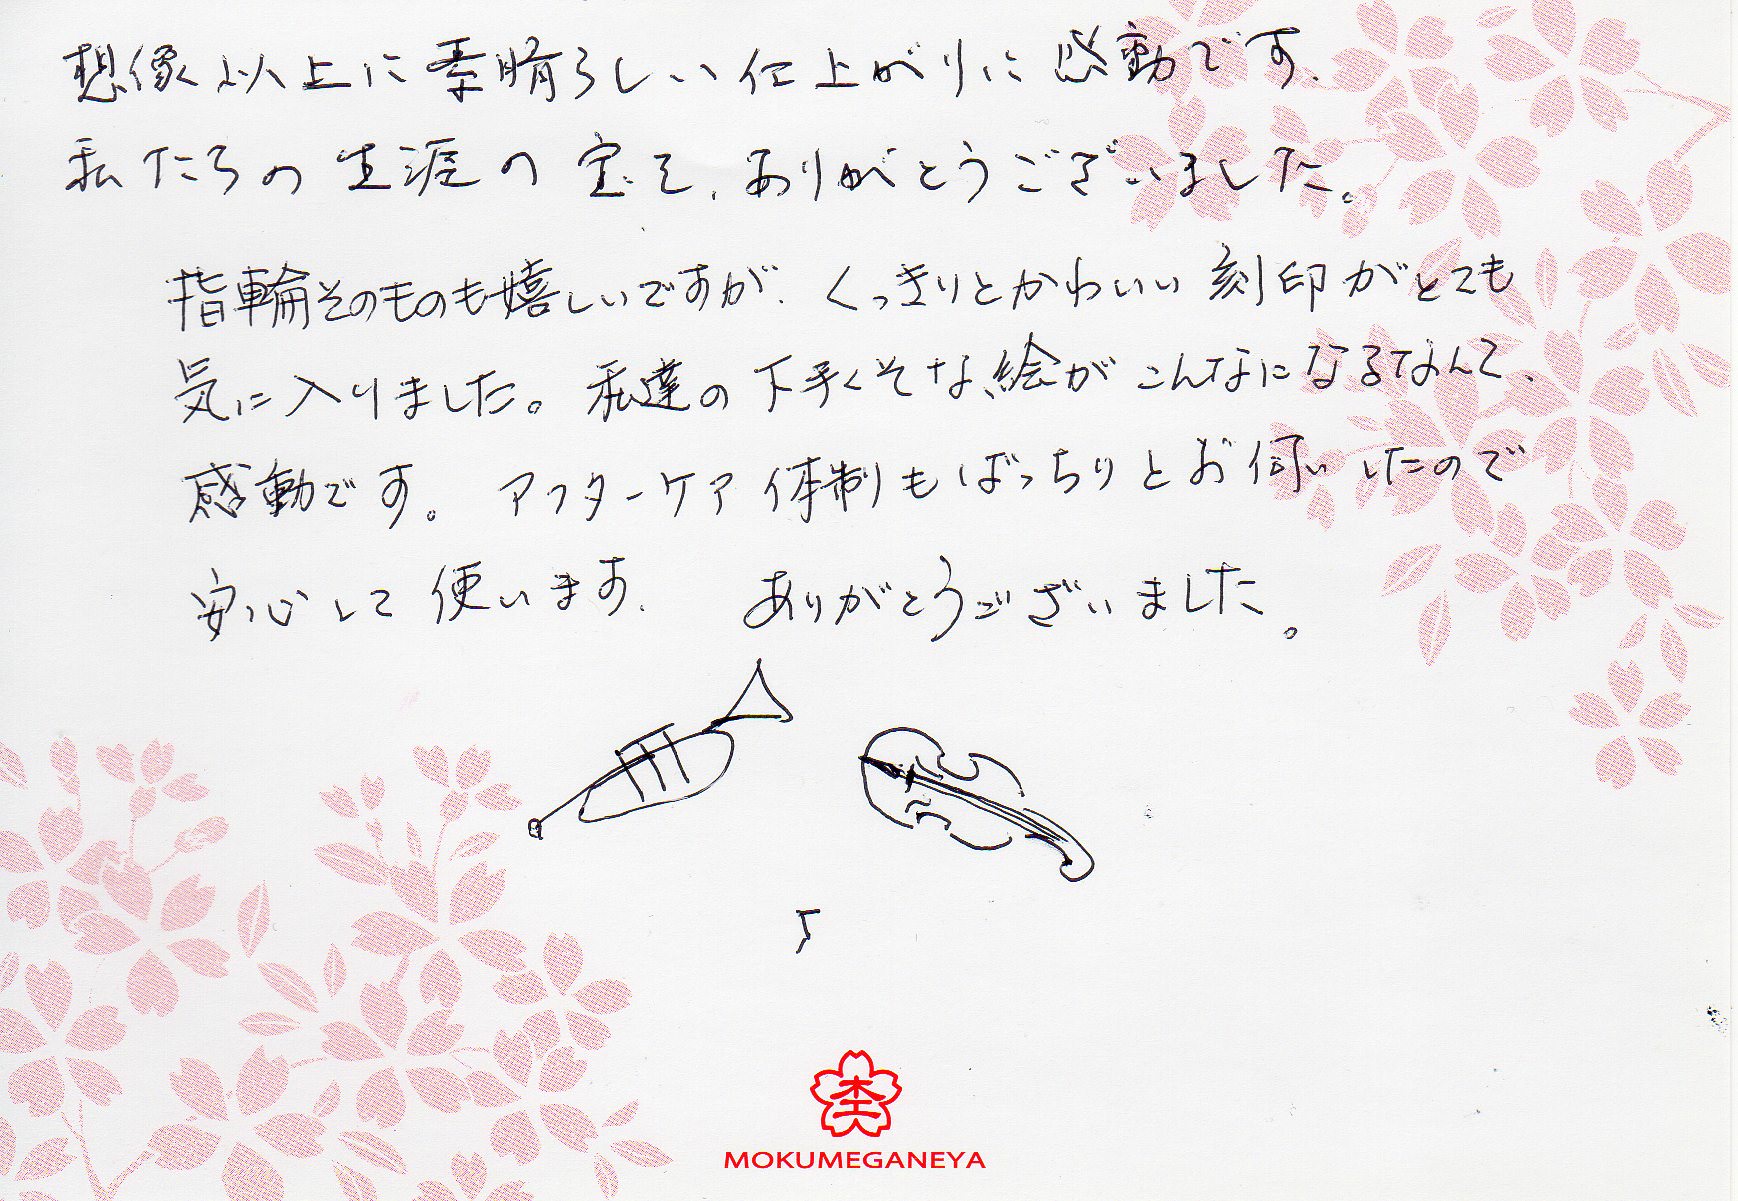 想像以上に素晴らしい仕上がりに感動です.
私たちの生涯の宝を、ありがとうございました。
指輪そのものも嬉しいですが、くっきりとかわいい刻印がとても
気に入りました。私達の下手くそな絵がこんなになるなんて、
感動です。アフターケア体制もばっちりとお伺いしたので
安心して使います. ありがとうございました。
杢
MOKUMEGANEYA